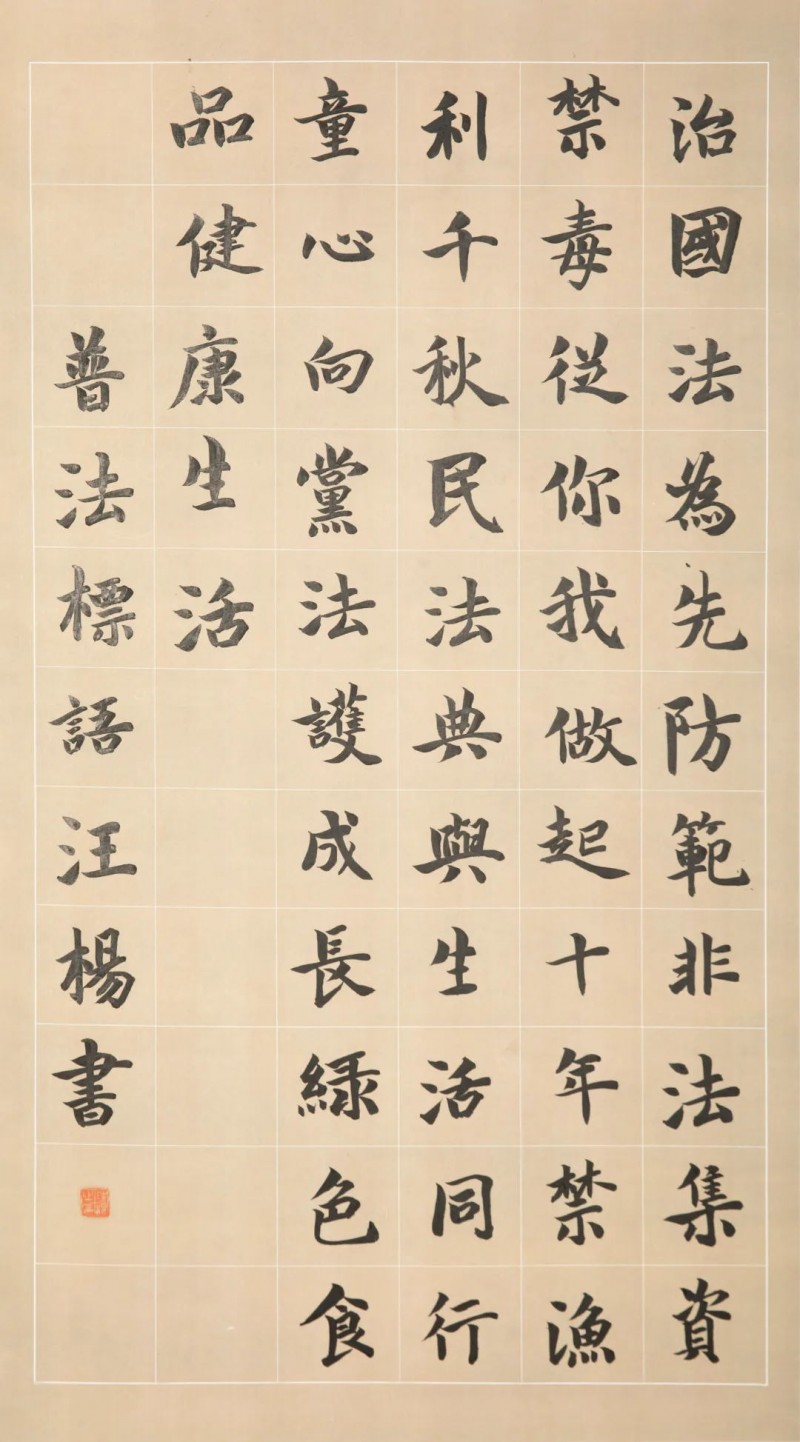 治國法為先防範非法集資
禁毒從你我做起十年禁漁
利千秋民法典與生活同行
童心向黨法護成長緑色食
品健康生活
普法標語汪楊書